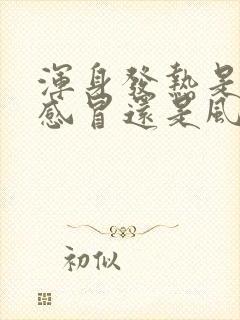 渾身發熱是
感冒還是風
初似